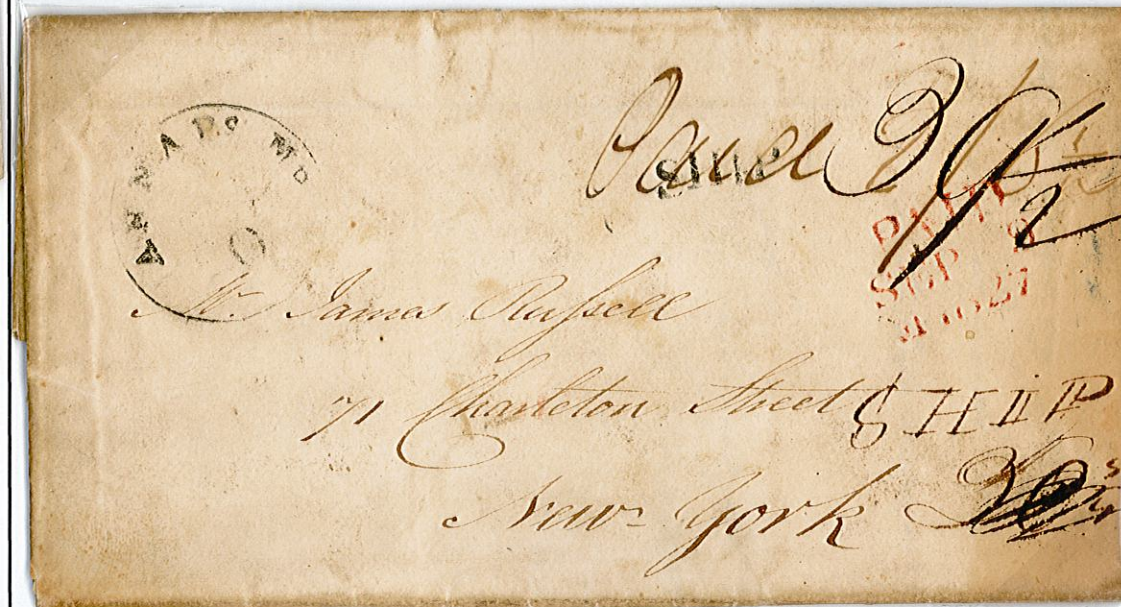 ANNAPS. MD
Paid
SHIP
PAID
SEP
1827
Mr. James Russell
71 Charleton Street
SHIP
New York